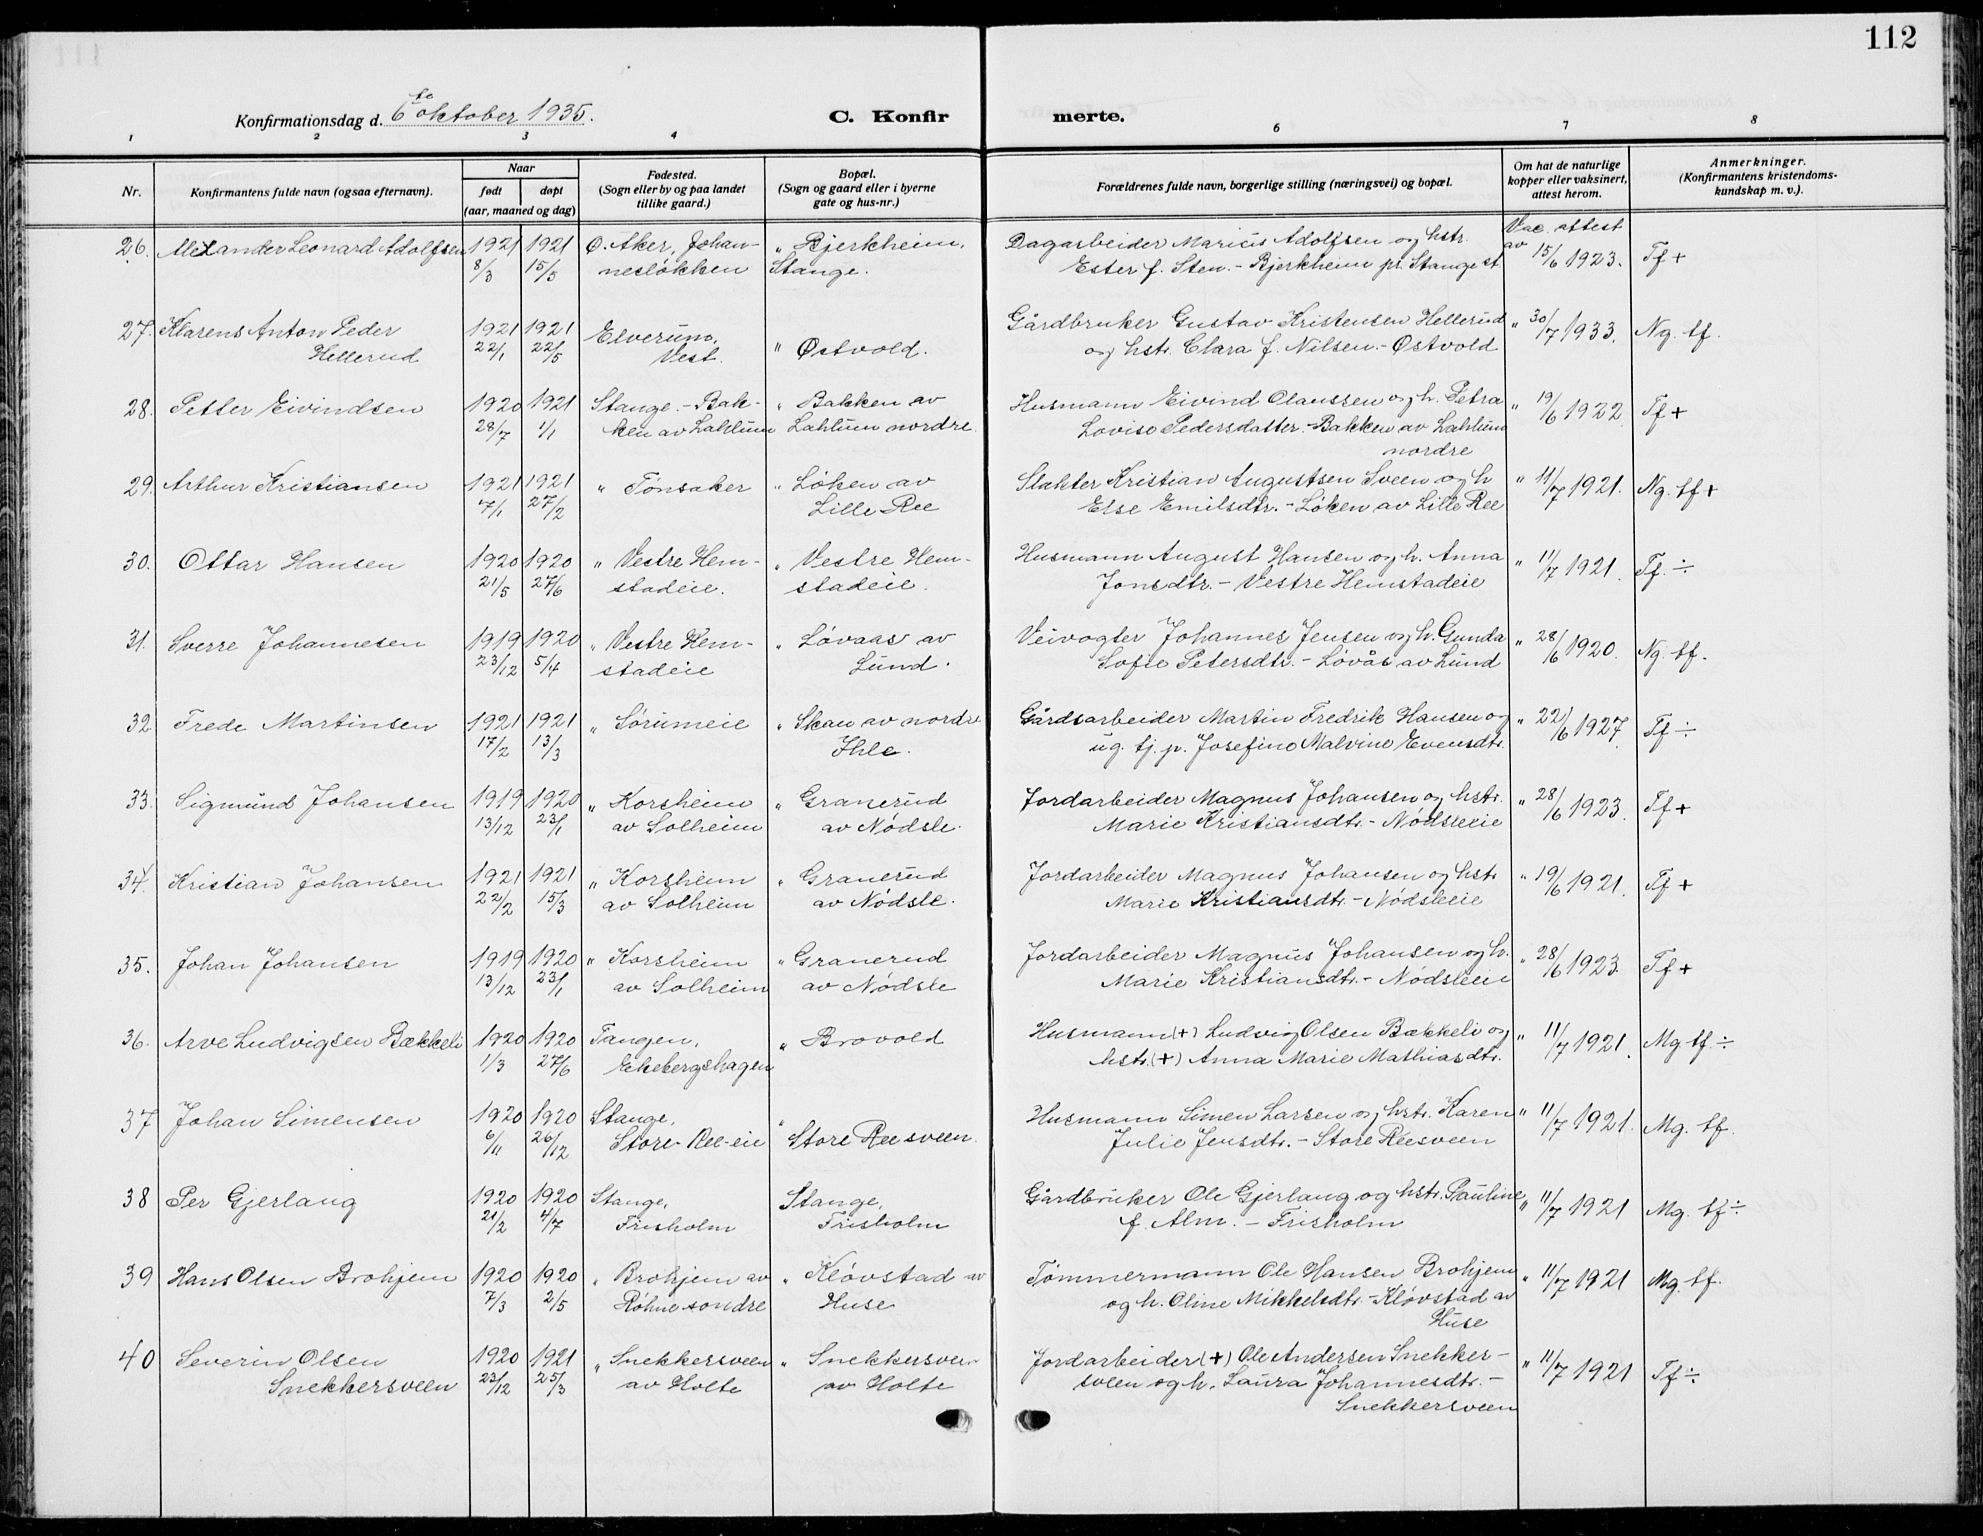 112
Konfirmationsdag d. 6te oktober 1935.
C. Konfir
merte.
1 2 3 4 6 7 8
Nr.
Konfirmantens fulde navn (ogsaa efternavn).
Naar
født døpt
(aar, maaned og dag)
Fødested.
(Sogn eller by og paa landet
tillike gaard.)
Bopæl.
(Sogn og gaard eller i byerne
gate og hus-nr.)
Forældrenes fulde navn, borgerlige stilling (næringsvei) og bopæl.
Om hat de naturlige
kopper eller vaksinert,
attest herom.
Anmerkninger.
(Konfirmantens kristendoms-
kundskap m. v.).
Vac. attest
26. Alexander Leonard Adolfsen 1921 1921 Ø. Aker, Johan- " Bjerkheim, Dagarbeider Marius Adolfsen og hstr. av 15/6 1923. Tf +
8/3 15/5 nesløkken Stange. Ester f. Sten. - Bjerkheim pr. Stange st.
27. Klarens Anton Peder 1921 1921 Elverum, Gårdbruker Gustav Kristensen Hellerud " 30/7 1933. Ng. tf.
Hellerud 22/1 22/5 Vest. " Østvold. og hstr. Clara f. Nilsen. - Østvold
28. Petter Eivindsen 1920 1921 Stange. - Bak- " Bakken av Husmann Eivind Olaussen og h. Petra " 19/6 1922 Tf +
28/7 1/1 ken av Lahlum Lahlum nordre. Lovise Pedersdatter. - Bakken av Lahlum
nordre
29. Arthur Kristiansen 1921 1921 " Tønsaker " Løken av Slakter Kristian Augustsen Sveen og h " 11/7 1921. Ng. tf +
7/1 27/2 Lille Ree Else Emilsdtr. - Løken av Lille Ree
30. Ottar Hansen 1920 1920 " Vestre Hem- " Vestre Hem- Husmann August Hansen og h. Anna " 11/7 1921. Tf. ÷
21/5 27/6 stadeie. stadeie. Jonsdtr. - Vestre Hemstadeie
31. Sverre Johannesen 1919 1920 " Vestre Hem- " Løvaas av Veivogter Johannes Jensen og h. Gunda " 28/6 1920. Ng. tf.
23/12 5/4 stadeie Lund. Sofie Petersdtr. - Løvås av Lund
32 Frede Martinsen 1921 1921 " Sørumeie " Skau av nordre Gårdsarbeider Martin Fredrik Hansen og " 22/6 1927. Tf ÷
17/2 13/3 Ihle. ug. tj. p. Josefine Malvine Evensdtr.
33. Sigmund Johansen 1919 1920 " Korsheim " Granerud Jordarbeider Magnus Johansen og hstr. " 28/6 1923. Tf +
13/12 23/1 av Solheim av Nødsle. Marie Kristiansdtr. - Nødsleeie
34. Kristian Johansen 1921 1921 " Korsheim " Granerud Jordarbeider Magnus Johansen og hstr " 19/6 1921. Tf +
22/2 15/3 av Solheim av Nødsle. Marie Kristiansdtr. - Nødsleeie
35. Johan Johansen 1919 1920 " Korsheim " Granerud Jordarbeider Magnus Johansen og h. " 28/6 1923. Tf +
13/12 23/1 av Solheim av Nødsle Marie Kristiansdtr. - Nødsleeie
36. Arve Ludvigsen Bækkeli 1920 1920 Tangen, " Brovold Husmann (+) Ludvig Olsen Bækkeli og " 11/7 1921. Mg tf. ÷
1/3 27/6 Ekebergshagen hstr. (+) Anna Marie Mathiasdtr.
37 Johan Simensen 1920 1920 Stange, " Husmann Simen Larsen og hstr. Karen " 11/7 1921. Mg. tf.
6/11 26/12 Store-Ree-eie Store Ree sveen. Julie Jensdtr. - Store Reesveen
38 Per Gjerlaug 1920 1920 Stange, Stange, Gårdbruker Ole Gjerlaug og hstr. Pauline " 11/7 1921 Mg. tf ÷
21/2 4/7 Frisholm Frisholm f. Alm. - Frisholm
39 Hans Olsen Brohjem 1920 1920 " Brohjem av " Kløvstad av Tømmermann Ole Hansen Brohjem " 11/7 1921 Mg. tf.
7/3 2/5 Røhne søndre Huse og h. Oline Mikkelsdtr. - Kløvstad av
Huse
40 Severin Olsen 1920 1921 " Snekkersveen " Snekkersveen Jordarbeider (+) Ole Andersen Snekker- " 11/7 1921 Tf ÷
Snekkersveen 23/12 25/3 av Holte av Holte sveen og h. Laura Johannesdtr. -
Snekkersveen